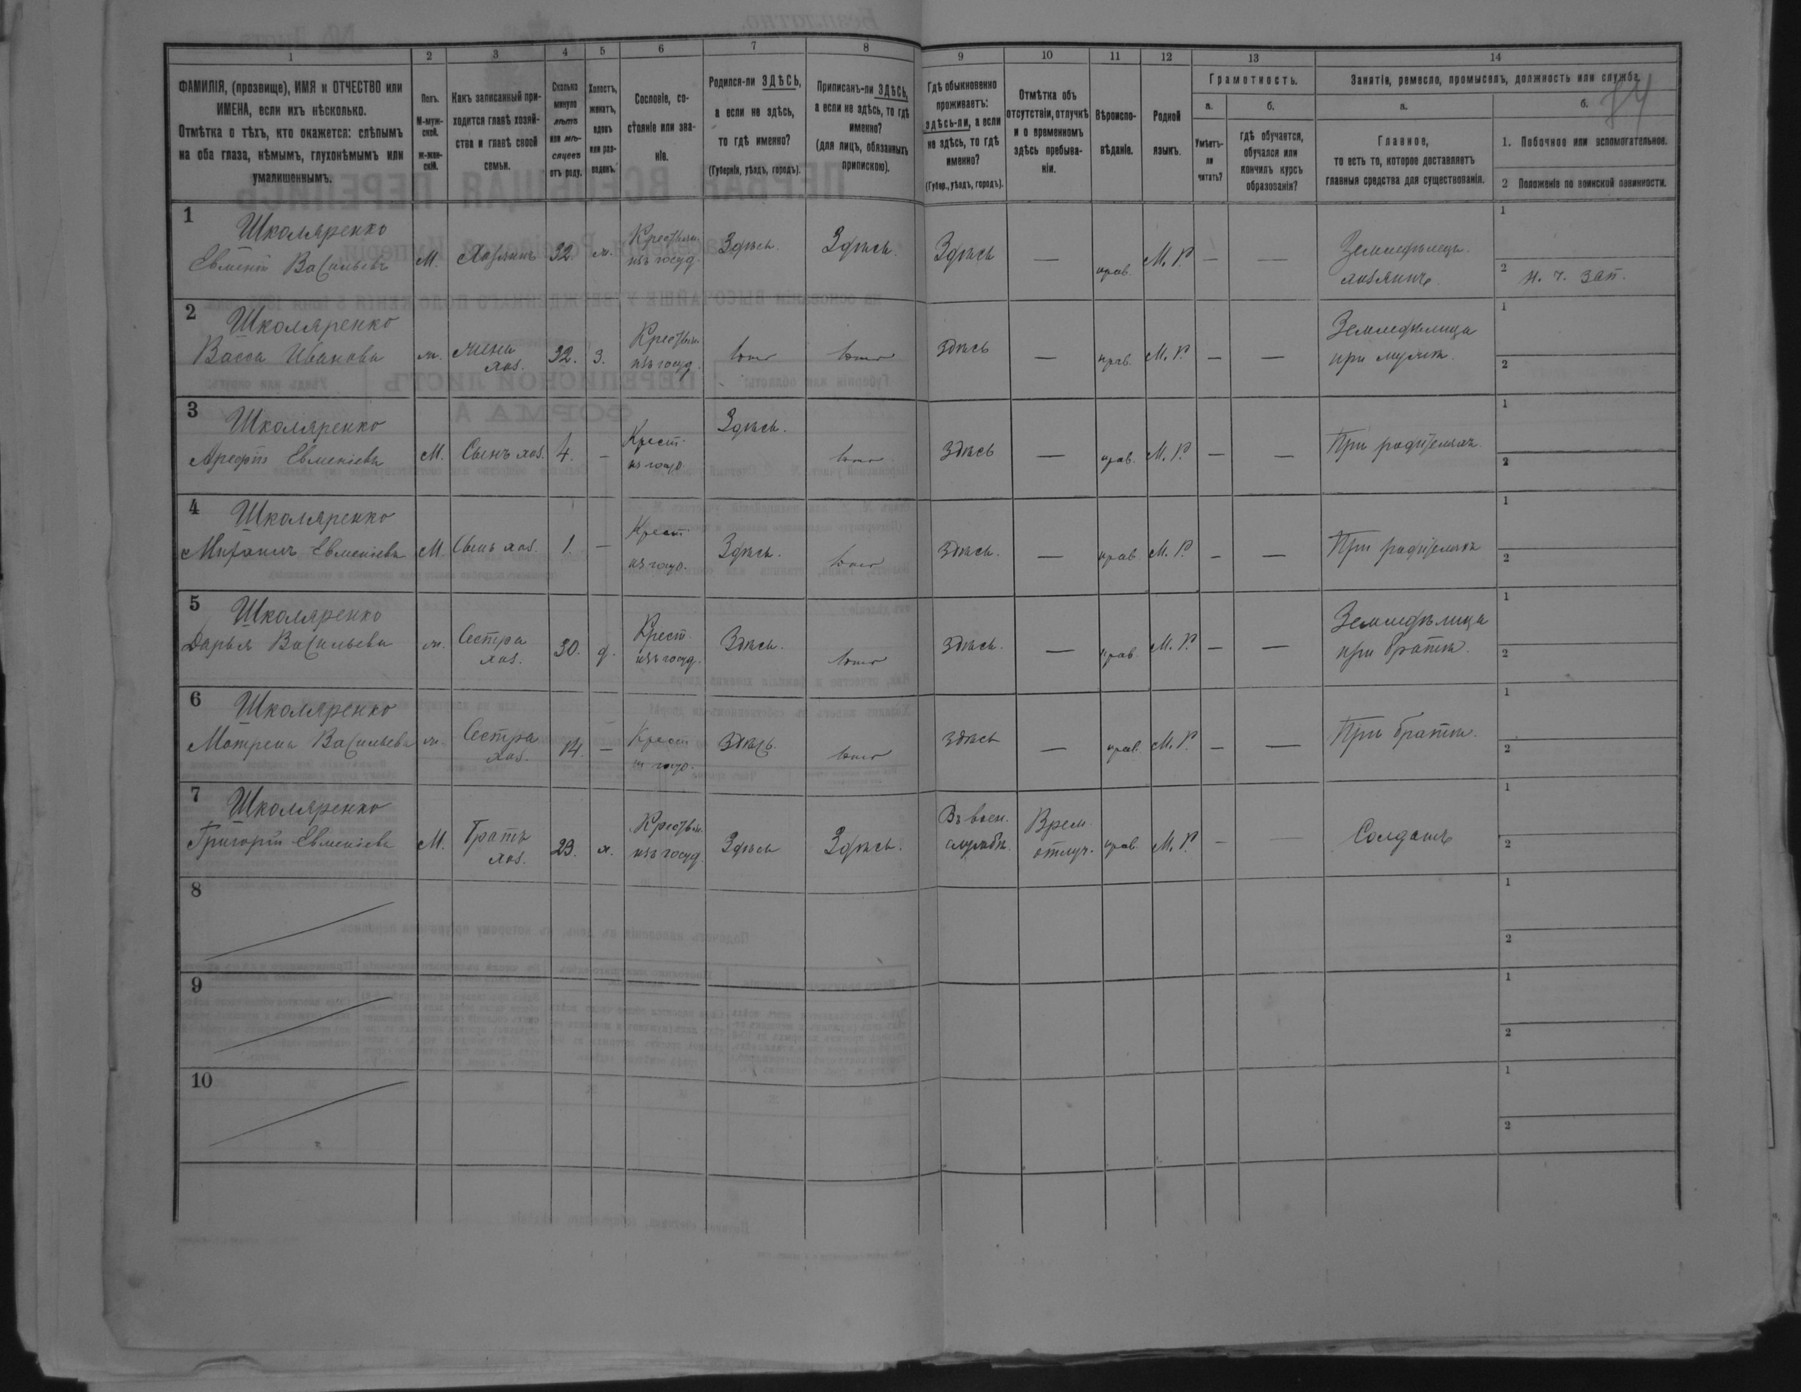 1 2 3 4 5 6 7 8 9 10 11 12 13 14
ФАМИЛІЯ, (прозвище), ИМЯ и ОТЧЕСТВО или
ИМЕНА, если ихъ нѣсколько.
Отмѣтка о тѣхъ, кто окажется: слѣпымъ
на оба глаза, нѣмымъ, глухонѣмымъ или
умалишеннымъ.
Полъ.
М-муж-
ской.
ж-жен-
скій.
Какъ записанный при-
ходится главѣ хозяй-
ства и главѣ своей
семьи.
Сколько
минуло
лѣтъ
или мѣ-
сяцевъ
отъ роду.
Холостъ,
женатъ,
вдовъ
или раз-
веденъ.
Сословіе, со-
стояніе или зва-
ніе.
Родился-ли ЗДѢСЬ,
а если не здѣсь,
то гдѣ именно?
(Губернія, уѣздъ, городъ).
Приписанъ-ли ЗДѢСЬ,
а если не здѣсь, то гдѣ
именно?
(для лицъ, обязанныхъ
припискою).
Гдѣ обыкновенно
проживаетъ:
здѣсь-ли, а если
не здѣсь, то гдѣ
именно?
(Губер., уѣздъ, городъ).
Отмѣтка объ
отсутствіи, отлучкѣ
и о временномъ
здѣсь пребыва-
ніи.
Вѣроиспо-
вѣданіе.
Родной
языкъ.
Грамотность.
а.
Умѣетъ-
ли
читать?
б.
гдѣ обучается,
обучался или
кончилъ курсъ
образованія?
Занятіе, ремесло, промыселъ, должность или служба.
а.
Главное,
то есть то, которое доставляетъ
главныя средства для существованія.
б.
1. Побочное или вспомогательное.
2 Положеніе по воинской повинности.
1 Школяренко
Евменій Васильевъ М. Хозяинъ 32 ж. Крестьян. изъ госуд. Здѣсь. Здѣсь. Здѣсь — прав. М. Р. — — Земледѣлецъ
хозяинъ. 1
2 н. ч. зап.
2 Школяренко
Васса Иванова ж. жена хоз. 32. з. Крестьян. изъ госуд. здѣсь — прав. М. Р. — — Земледѣлица
при мужѣ. 1
2
3 Школяренко
Арефій Евменіевъ М. Сынъ хоз. 4. — Крест. из госуд. Здѣсь. здѣсь — прав. М. Р. — — При родителяхъ 1
2
4 Школяренко
Михаилъ Евменіевъ М. Сынъ хоз. 1. — Крест. из госуд. Здѣсь. здѣсь. — прав. М. Р. — — При родителяхъ 1
2
5 Школяренко
Дарья Васильева ж. Сестра хоз. 30. д. Крест. изъ госуд. Здѣсь. здѣсь. — прав. М. Р. — — Земледѣлица
при братѣ. 1
2
6 Школяренко
Матрена Васильева ж. Сестра хоз. 14. — Крест. из госуд. Здѣсь. здѣсь — прав. М. Р. — — При братѣ. 1
2
7 Школяренко
Григорій Евменіевъ М. Братъ хоз. 23. х. Крестьян. изъ госуд. Здѣсь Здѣсь. Въ воен. службѣ. Врем. отлуч. прав. М. Р. — — Солдатъ 1
2
8 1
2
9 1
2
10 1
2